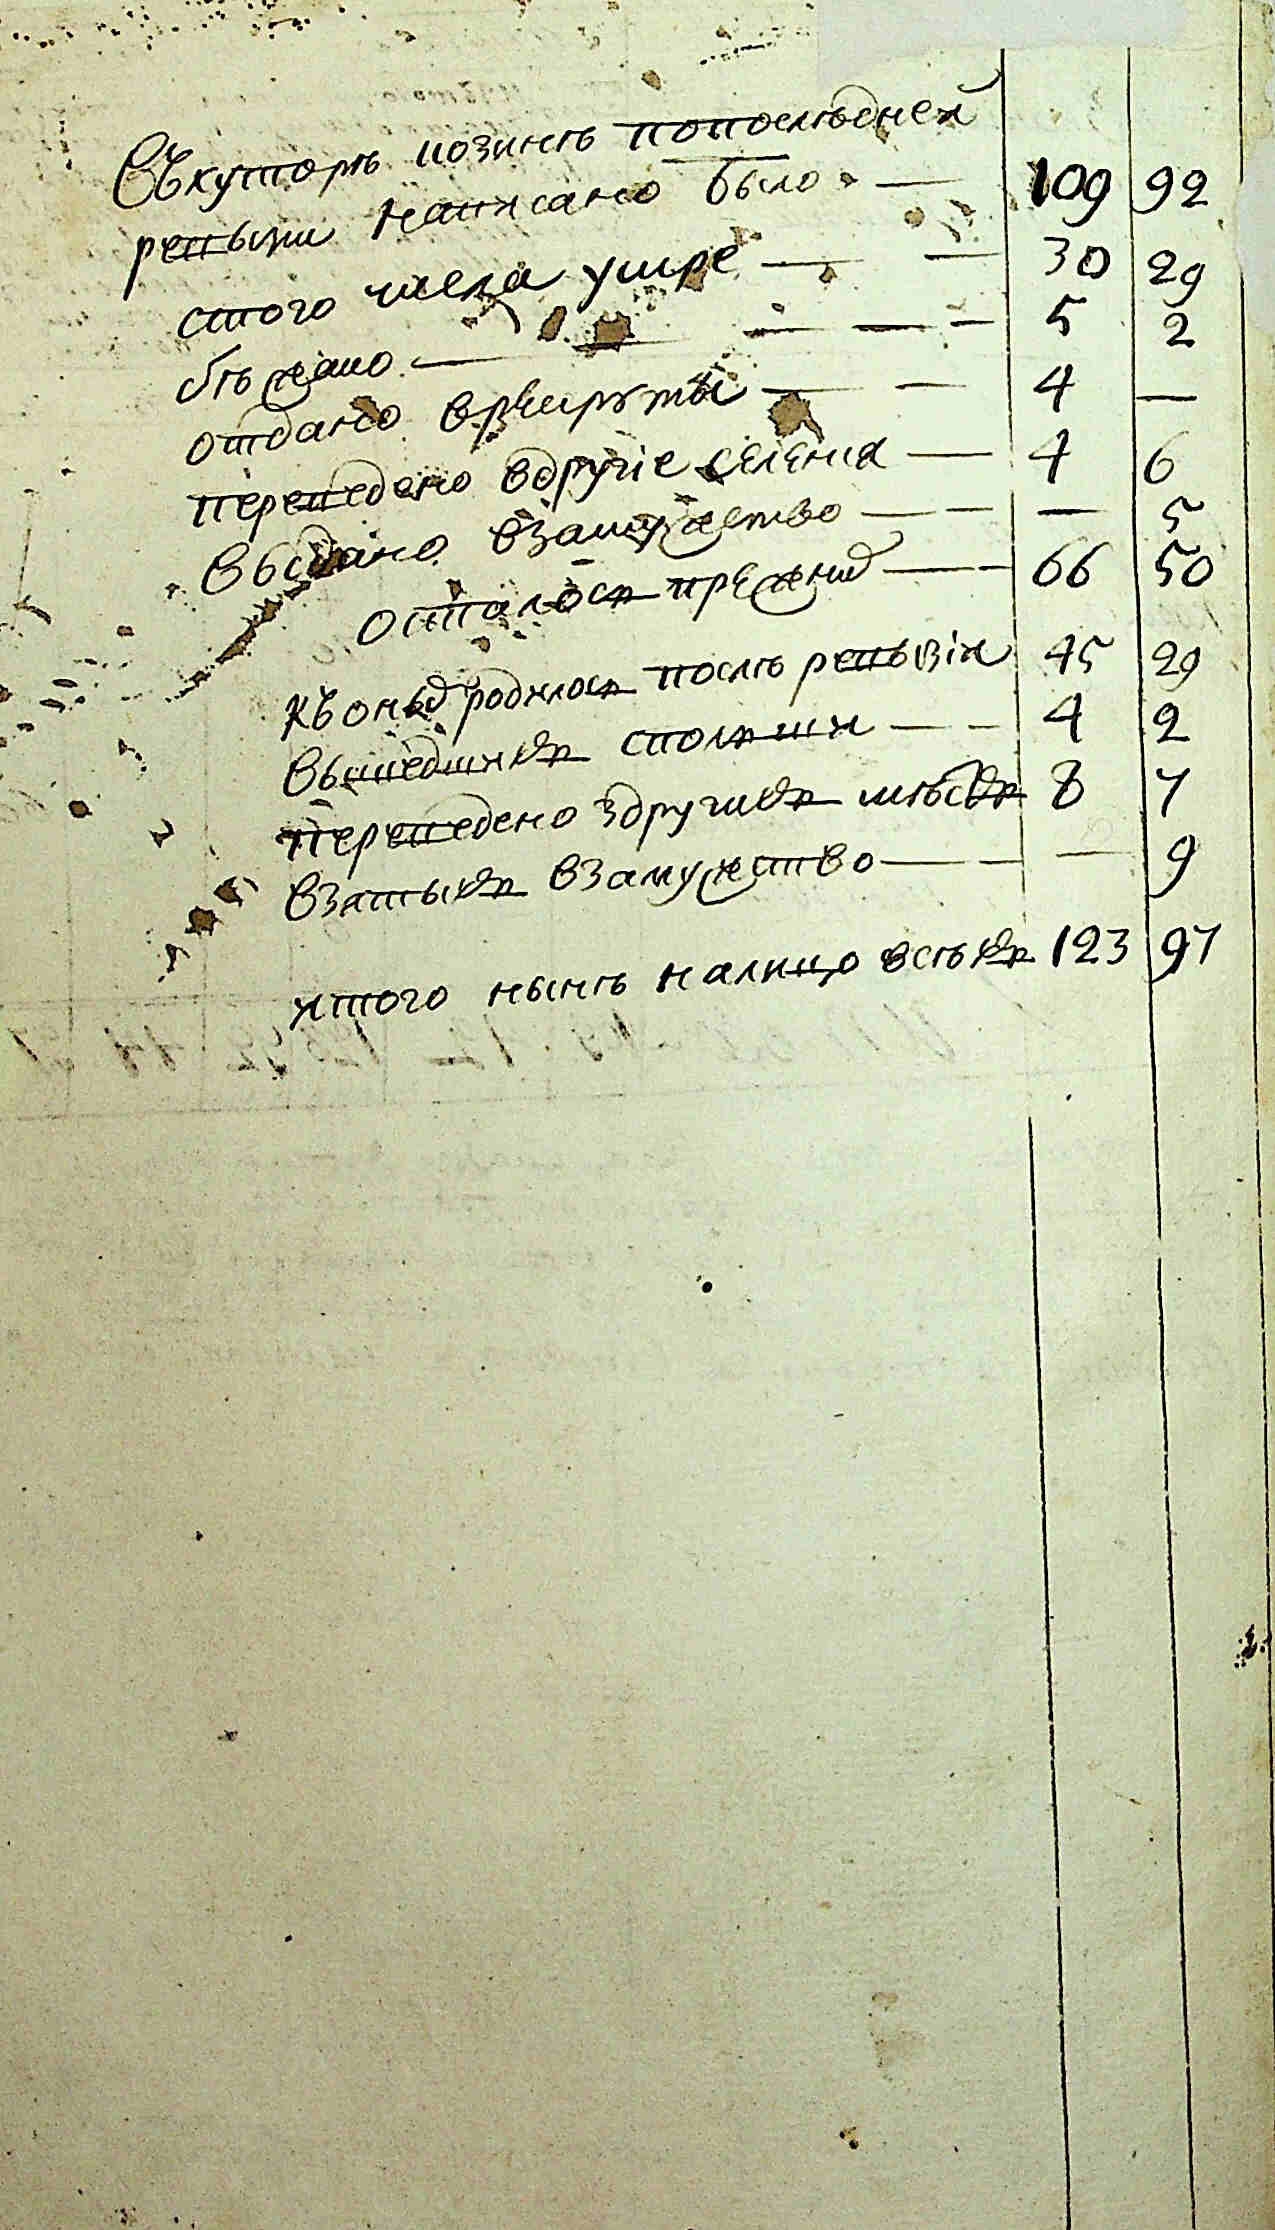 Въхуторѣ позинѣ попоследней
ревизии написано было — 109 92
стого числа умре — — 30 29
бѣжало — — — — 5 2
отдано врекруты — — 4 —
переведено вдругие селения — 4 6
выдано взамужство — — — 5
осталося прежнид — — 66 50
Къ онымъ родилося послѣ ревизии 45 29
вышедшихъ сполши — — 4 2
переведено здругихъ мѣстъ 8 7
взятыхъ взамужство — — — 9
итого нынѣ налицо всѣхъ 123 97